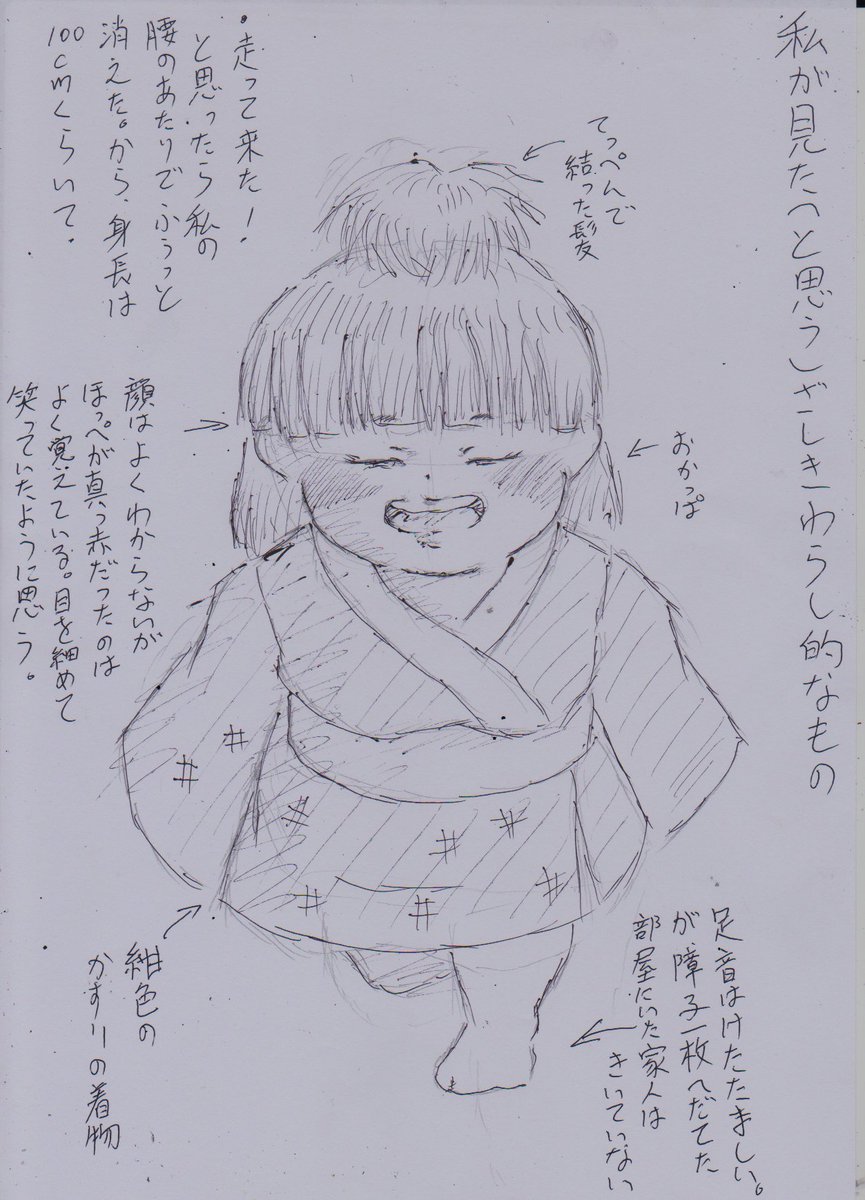 私が見た(と思う)ざしきわらし的なもの
てっぺんで
結った髪
・走って来た!
と思ったら私の
腰のあたりでふうっと
消えた。から、身長は
100cmくらいて.
おかっぱ
顔はよくわからないが
ほっぺが真っ赤だったのは
よく覚えている。目を細めて
笑っていたように思う。
足音はけたたましい。
が障子一枚へだてた
部屋にいた家人は
きいていない
紺色の
かすりの着物